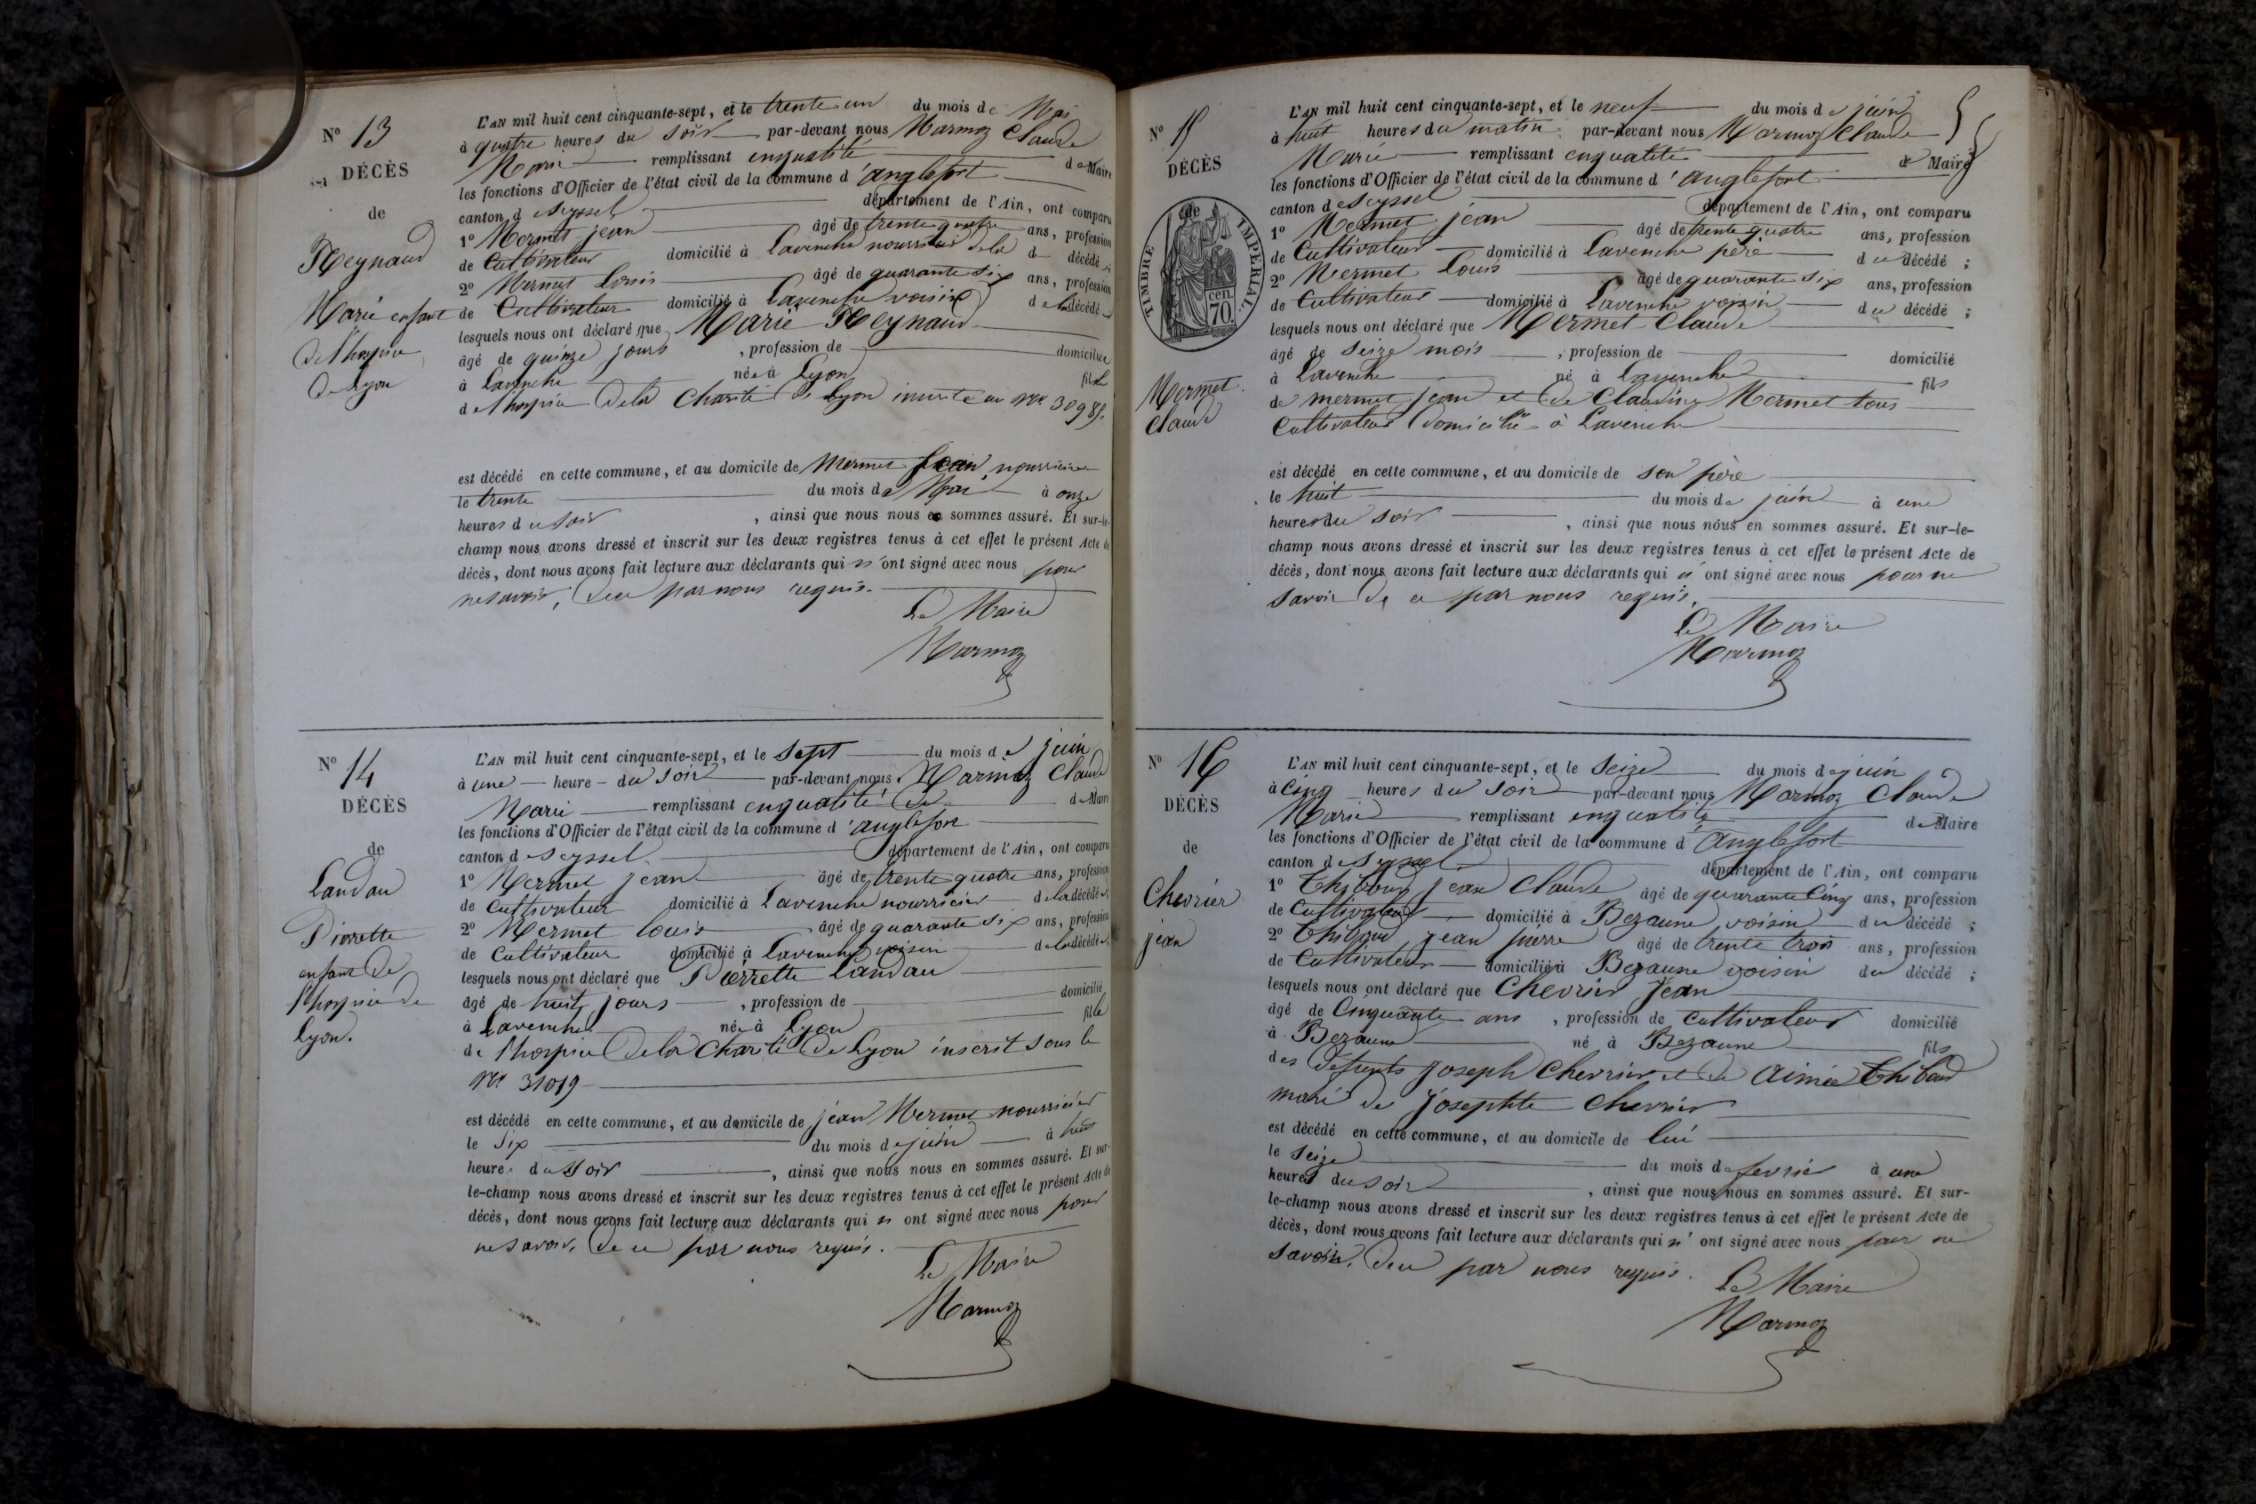 N° 13
DÉCÈS
de
Reynaud
Marie enfant
de l'hospice
de Lyon
L'AN mil huit cent cinquante-sept, et le trente un du mois de Mai
à quatre heures du soir par-devant nous Marmoz Claude
Marie remplissant en qualité de Maire
les fonctions d'Officier de l'état civil de la commune d'anglefort
canton de Seyssel département de l'Ain, ont comparu
1° Mermet jean âgé de trente quatre ans, profession
de Cultivateur domicilié à Lavenche nourricier de la décédée
2° Mermet Louis âgé de quarante six ans, profession
de Cultivateur domicilié à Lavenche voisin de la décédée
lesquels nous ont déclaré que Marie Reynaud
âgé de quinze jours, profession de domiciliée
à Lavenche née à Lyon fille
de l'hospice de la Charité de Lyon inscrite au N°
est décédé en cette commune, et au domicile de Mermet Jean nourricier
le trente du mois de Mai à onze
heures du soir, ainsi que nous nous en sommes assuré. Et sur-le-
champ nous avons dressé et inscrit sur les deux registres tenus à cet effet le présent Acte de
décès, dont nous avons fait lecture aux déclarants qui n'ont signé avec nous pour
ne savoir, de ce par nous requis.
Le Maire
Marmoz
N° 14
DÉCÈS
de
Landau
Pierrette
enfant de
l'hospice de
Lyon.
L'AN mil huit cent cinquante-sept, et le Sept du mois de juin
à une heure du soir par-devant nous Marmoz Claude
Marie remplissant en qualité de de Maire
les fonctions d'Officier de l'état civil de la commune d'anglefort
canton de Seyssel département de l'Ain, ont comparu
1° Mermet jean âgé de trente quatre ans, profession
de Cultivateur domicilié à Lavenche nourricier de la décédée
2° Mermet Louis âgé de quarante six ans, profession
de Cultivateur domicilié à Lavenche voisin de la décédée
lesquels nous ont déclaré que Pierrette Landau
âgé de huit jours, profession de domicilié
à Lavenche née à Lyon fille
de l'hospice de la Charité de Lyon inscrit sous le
N° 31019
est décédé en cette commune, et au domicile de jean Mermet nourricier
le Six du mois de juin à huit
heures du soir, ainsi que nous nous en sommes assuré. Et sur-
le-champ nous avons dressé et inscrit sur les deux registres tenus à cet effet le présent Acte de
décès, dont nous avons fait lecture aux déclarants qui n'ont signé avec nous pour
ne savoir, de ce par nous requis.
Le Maire
Marmoz
N° 15
DÉCÈS
de
TIMBRE IMPÉRIAL.
70 cen.
Mermet
Claude
L'AN mil huit cent cinquante-sept, et le neuf du mois de juin
à huit heures du matin par-devant nous Marmoz Claude
Marie remplissant en qualité de Maire
les fonctions d'Officier de l'état civil de la commune d'anglefort
canton de Seyssel département de l'Ain, ont comparu
1° Mermet jean âgé de trente quatre ans, profession
de Cultivateur domicilié à Lavenche père du décédé;
2° Mermet Louis âgé de quarante six ans, profession
de Cultivateur domicilié à Lavenche voisin du décédé;
lesquels nous ont déclaré que Mermet Claude
âgé de seize mois, profession de domicilié
à Lavenche né à Lavenche fils
de mermet jean et de Claudine Mermet tous
Cultivateurs domiciliés à Lavenche
est décédé en cette commune, et au domicile de son père
le huit du mois de juin à une
heures du soir, ainsi que nous nous en sommes assuré. Et sur-le-
champ nous avons dressé et inscrit sur les deux registres tenus à cet effet le présent Acte de
décès, dont nous avons fait lecture aux déclarants qui n'ont signé avec nous pour ne
savoir de ce par nous requis.
Le Maire
Marmoz
N° 16
DÉCÈS
de
Chevrier
jean
L'AN mil huit cent cinquante-sept, et le Seize du mois de juin
à Cinq heures du soir par-devant nous Marmoz Claude
Marie remplissant en qualité de Maire
les fonctions d'Officier de l'état civil de la commune d'Anglefort
canton de Seyssel département de l'Ain, ont comparu
1° Thiboud jean Claude âgé de quarante Cinq ans, profession
de Cultivateur domicilié à Bezaune voisin du décédé;
2° Thiboud jean pierre âgé de trente trois ans, profession
de Cultivateur domicilié à Bezaune voisin du décédé;
lesquels nous ont déclaré que Chevrier Jean
âgé de Cinquante ans, profession de Cultivateur domicilié
à Bezaune né à Bezaune fils
des defunts Joseph Chevrier et de Aimée Thiboud
marié de Josephte Chevrier
est décédé en cette commune, et au domicile de lui
le seize du mois de fevrier à une
heures du soir, ainsi que nous nous en sommes assuré. Et sur-
le-champ nous avons dressé et inscrit sur les deux registres tenus à cet effet le présent Acte de
décès, dont nous avons fait lecture aux déclarants qui n'ont signé avec nous pour ne
savoir, de ce par nous requis.
Le Maire
Marmoz